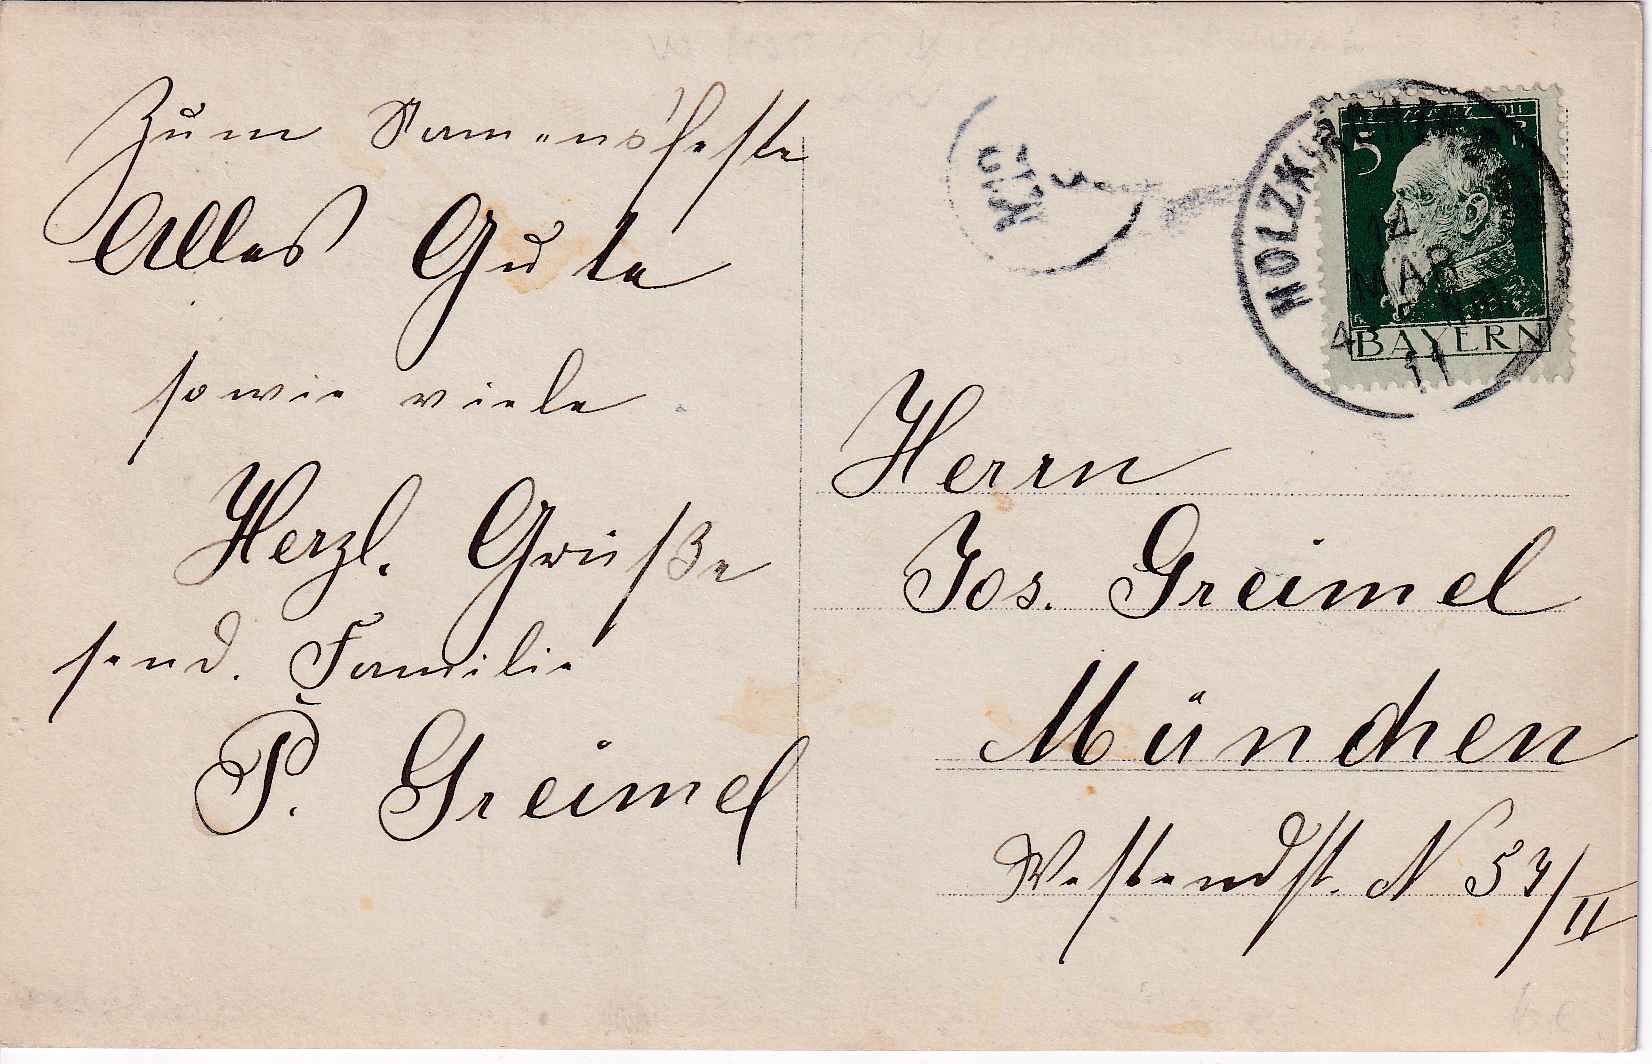 Zum Namensfeste
Alles Gute
sowie viele
Herzl. Grüße
send. Familie
P. Greimel
HOLZKIRCHEN
14
MAR
11
5
BAYERN
Herrn
Jos. Greimel
München
Westendst. N 57/II